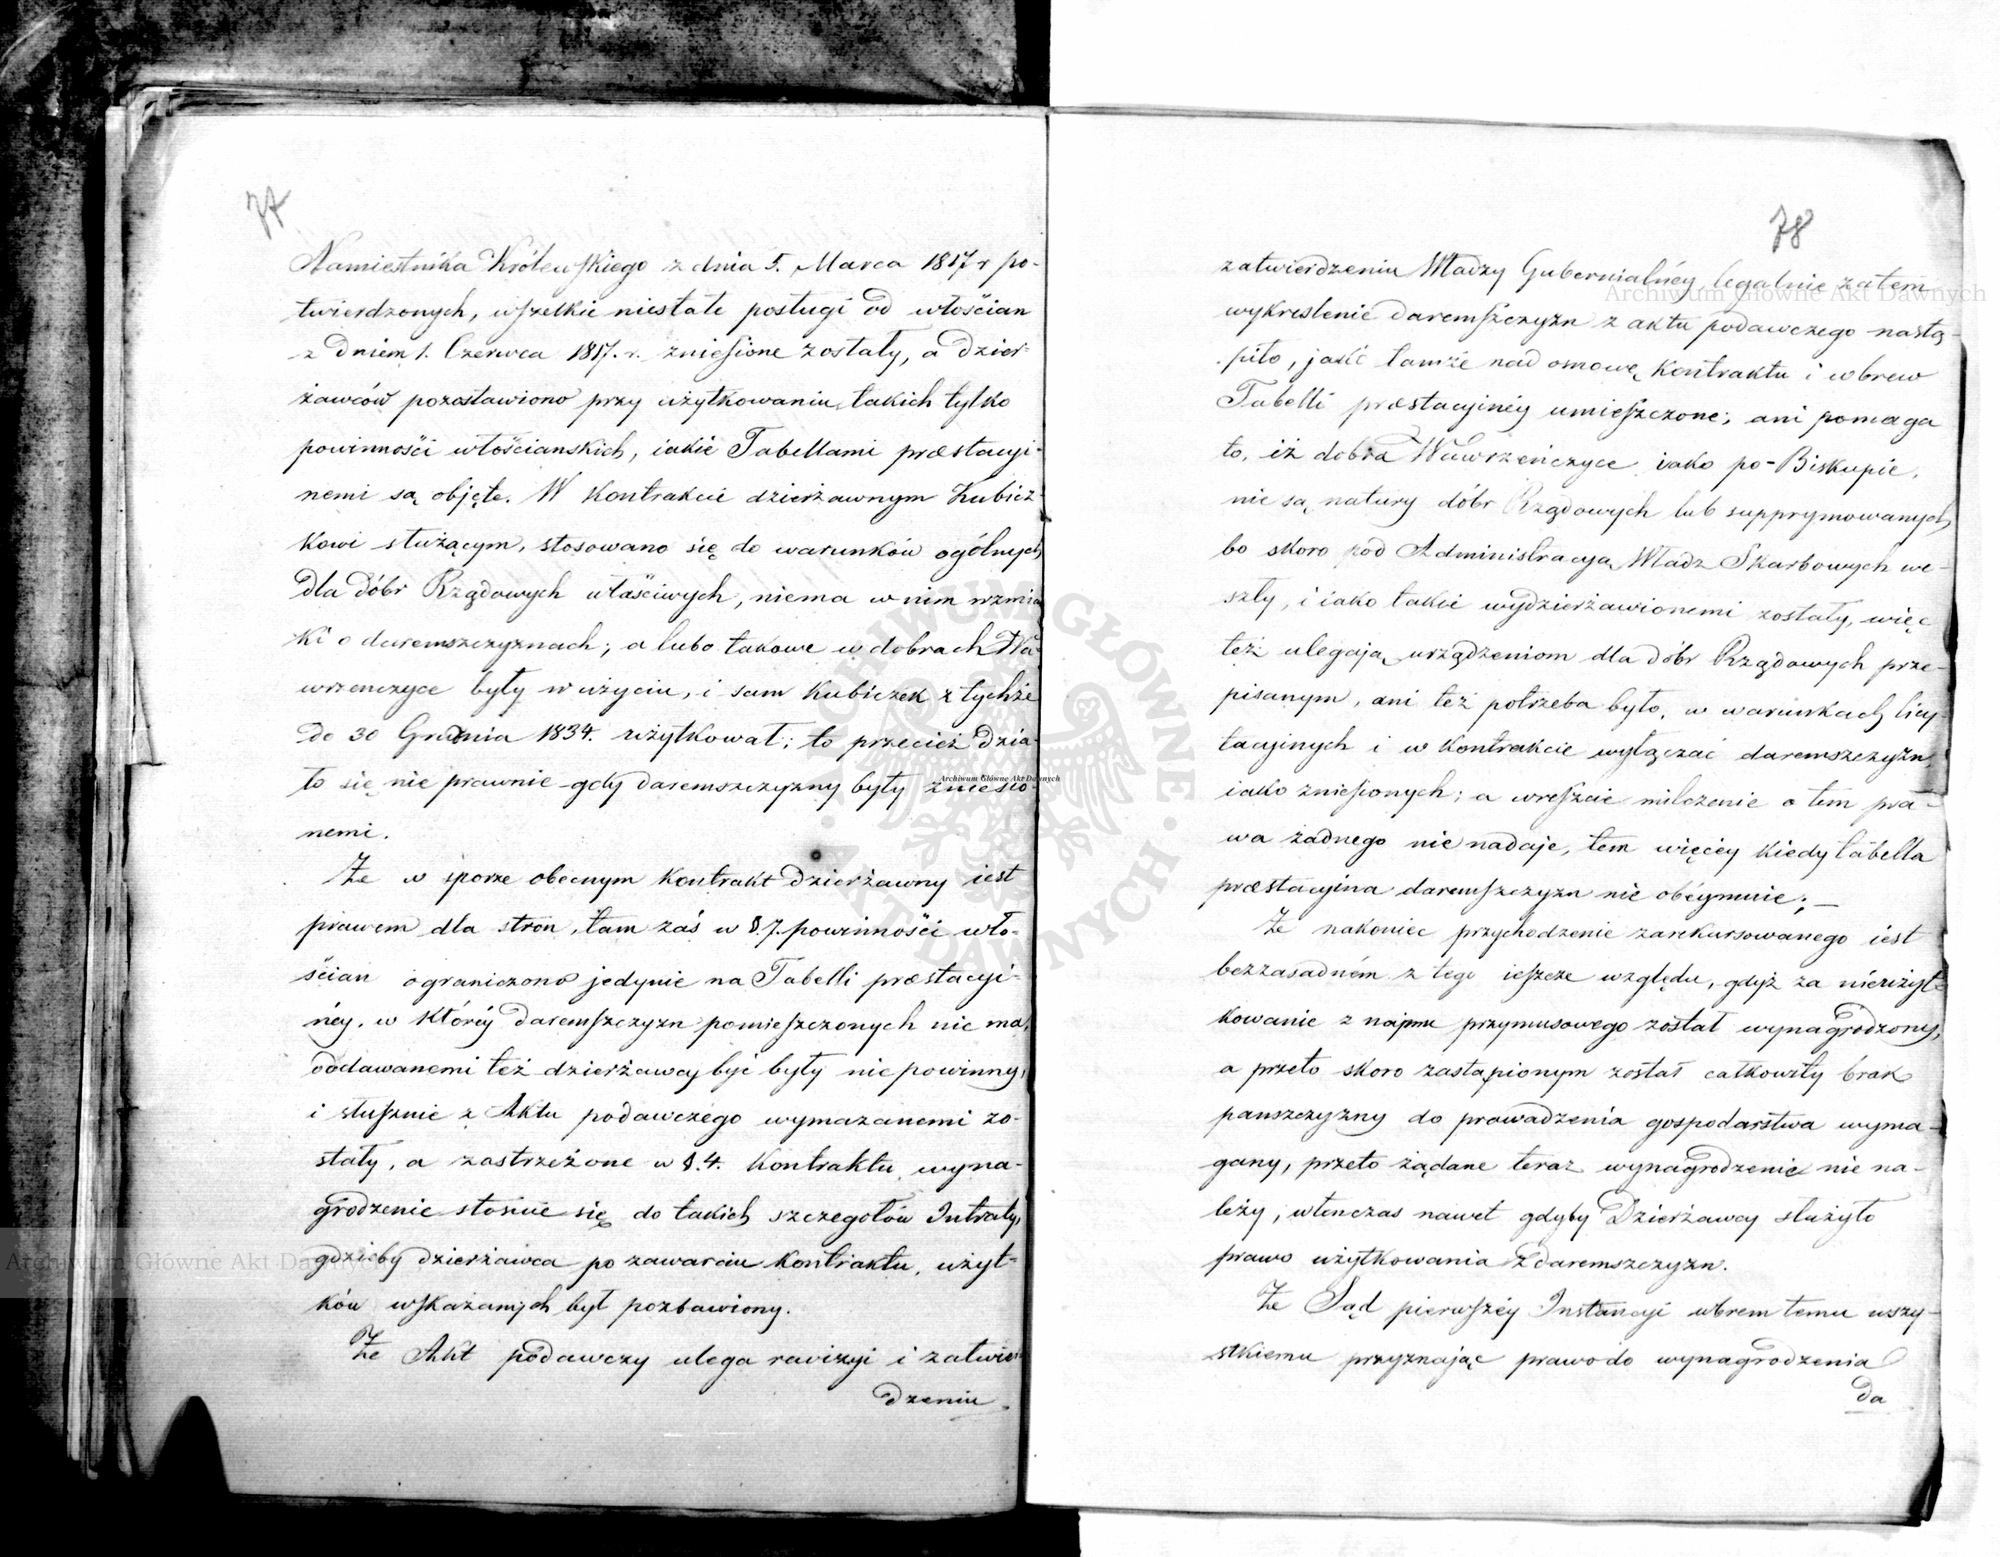 77
Namiestnika Królewskiego z dnia 5. Marca 1817 r po-
twierdzonych, wszelkie niestałe posługi od włościan
z Dniem 1. Czerwca 1817. r. zniesione zostały, a dzier-
żawców pozostawiono przy użytkowaniu takich tylko
powinności włościanskich, iakie Tabellami præstacyi-
nemi są objęte. W Kontrakcie dzierżawnym Kubicz-
kowi służącym, stosowano się do warunków ogólnych
dla dóbr Rządowych właściwych, niema w nim wzmia
ki o daremszczyznach; a lubo takowe w dobrach Wa-
wrzenczyce były w użyciu, i sam Kubiczek z tychże
do 30 Grudnia 1834. użytkował; to przecież dzia-
ło się nie prawnie gdy daremszczyzny były zniesio-
nemi.
Że w sporze obecnym Kontrakt Dzierżawny iest
prawem dla stron, tam zaś w §.7. powinności wło-
ścian ograniczono jedynie na Tabelli præstacyi-
néy, w któréy daremszczyzn pomieszczonych nie ma,
oddawanemi też dzierżawcy być były nie powinny,
i słusznie z Aktu podawczego wymazanemi zo-
stały, a zastrzeżone w §.4. Kontraktu, wyna-
grodzenie stosuie się do takich szczegółów Intraty,
gdzieby dzierżawca po zawarciu Kontraktu, użyt-
ków wskazanych był pozbawiony.
Że Akt pódawczy ulega rewizyi i zatwier
dzeniu
78
zatwierdzeniu Władzy Gubernialnéy, legalnie zatem
wykreslenie daremszczyzn z aktu podawczego nastą-
piło, jako tamże nad osnowę Kontraktu i wbrew
Tabelli præstacyinéy umieszczone; ani pomaga
to, iż dobra Wawrzeńczyce iako po-Biskupie,
nie są natury dóbr Rządowych lub supprymowanych,
bo skoro pod Administracyą Władz Skarbowych we-
szły, i iako takie wydzierżawionemi zostały, więc
też ulegają urządzeniom dla dóbr Rządowych prze-
pisanym, ani też potrzeba było, w warunkach licy-
tacyinych i w Kontrakcie wyłączać daremszczyzn,
iako zniesionych; a wreszcie milczenie o tem pra-
wa żadnego nie nadaje, tem więcéy kiedy tabella
præstacyina daremszczyzn nie obéymuie; —
Że nakoniec przychodzenie zarekursowanego iest
bezzasadném z tego ieszcze względu, gdyż za nieużyt-
kowanie z najmu przymusowego został wynagrodzony,
a przeto skoro zastąpionym został całkowity brak
panszczyzny do prowadzenia gospodarstwa wyma-
gany, przeto żądane teraz wynagrodzenie nie na-
leży, wtenczas nawet gdyby Dzierżawcy służyło
prawo użytkowania z daremszczyzn.
Że Sąd pierwszéy Instancyi wbrew temu wszy-
stkiemu przyznając prawo do wynagrodzenia
da
Archiwum Główne Akt Dawnych
Archiwum Główne Akt Dawnych
Archiwum Główne Akt Dawnych
ARCHIWUM GŁÓWNE · AKT DAWNYCH ·